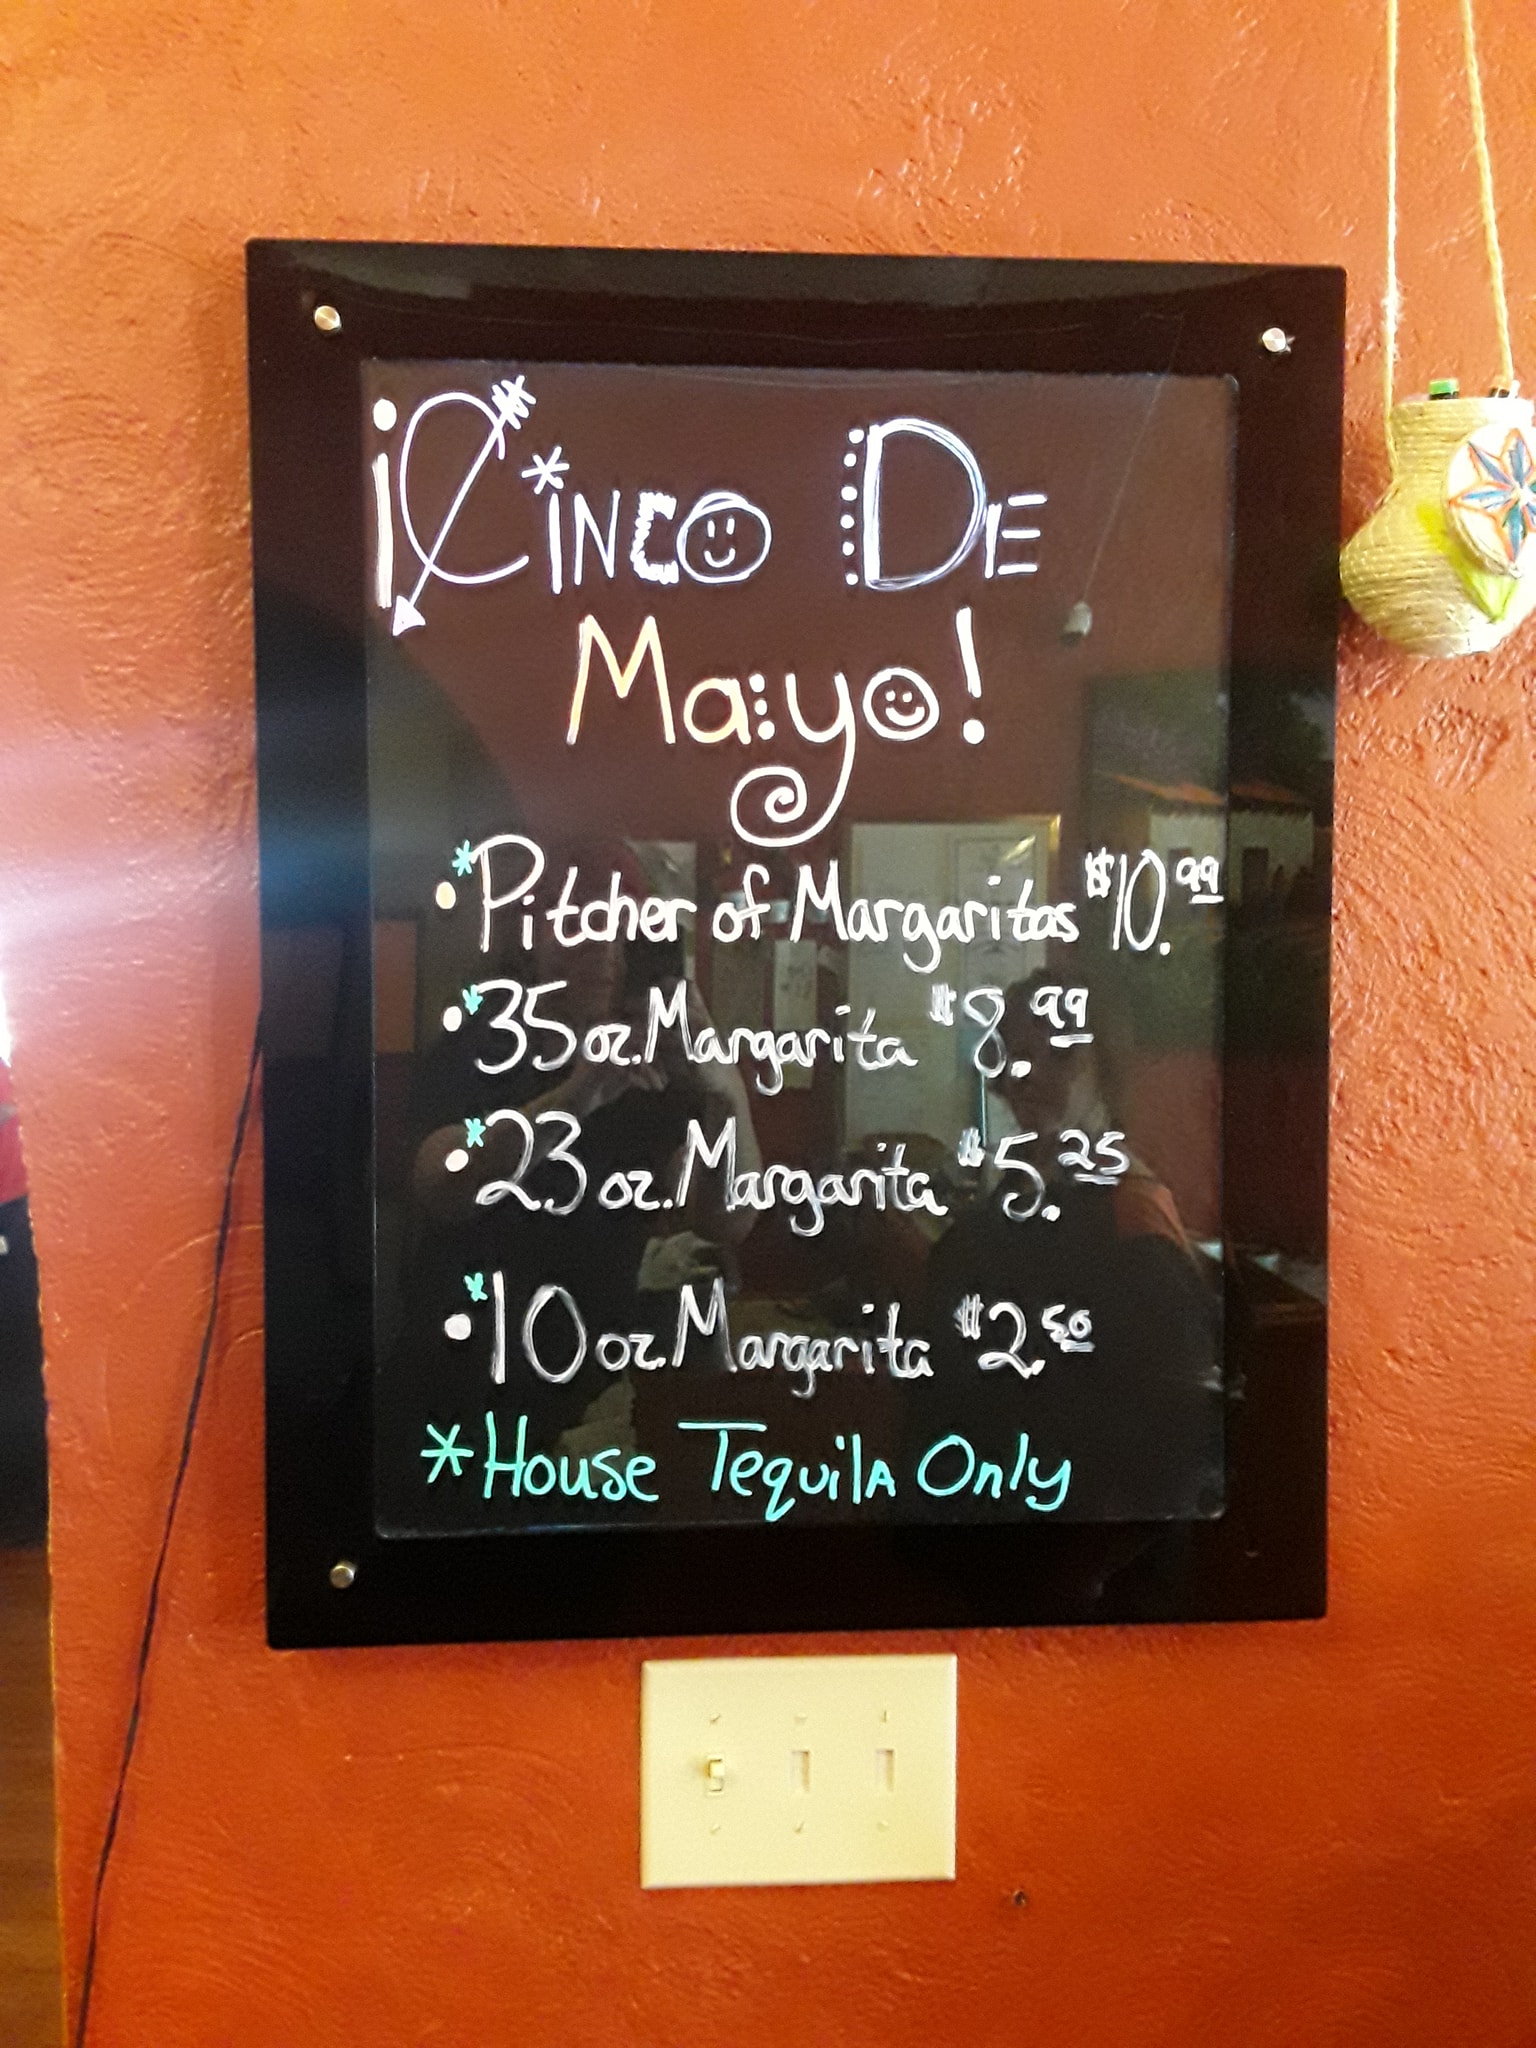 ¡CINCO DE
Mayo!
* Pitcher of Margaritas $10.99
* 35 oz. Margarita $8.99
* 23 oz. Margarita $5.25
* 10 oz. Margarita $2.50
* House Tequila Only